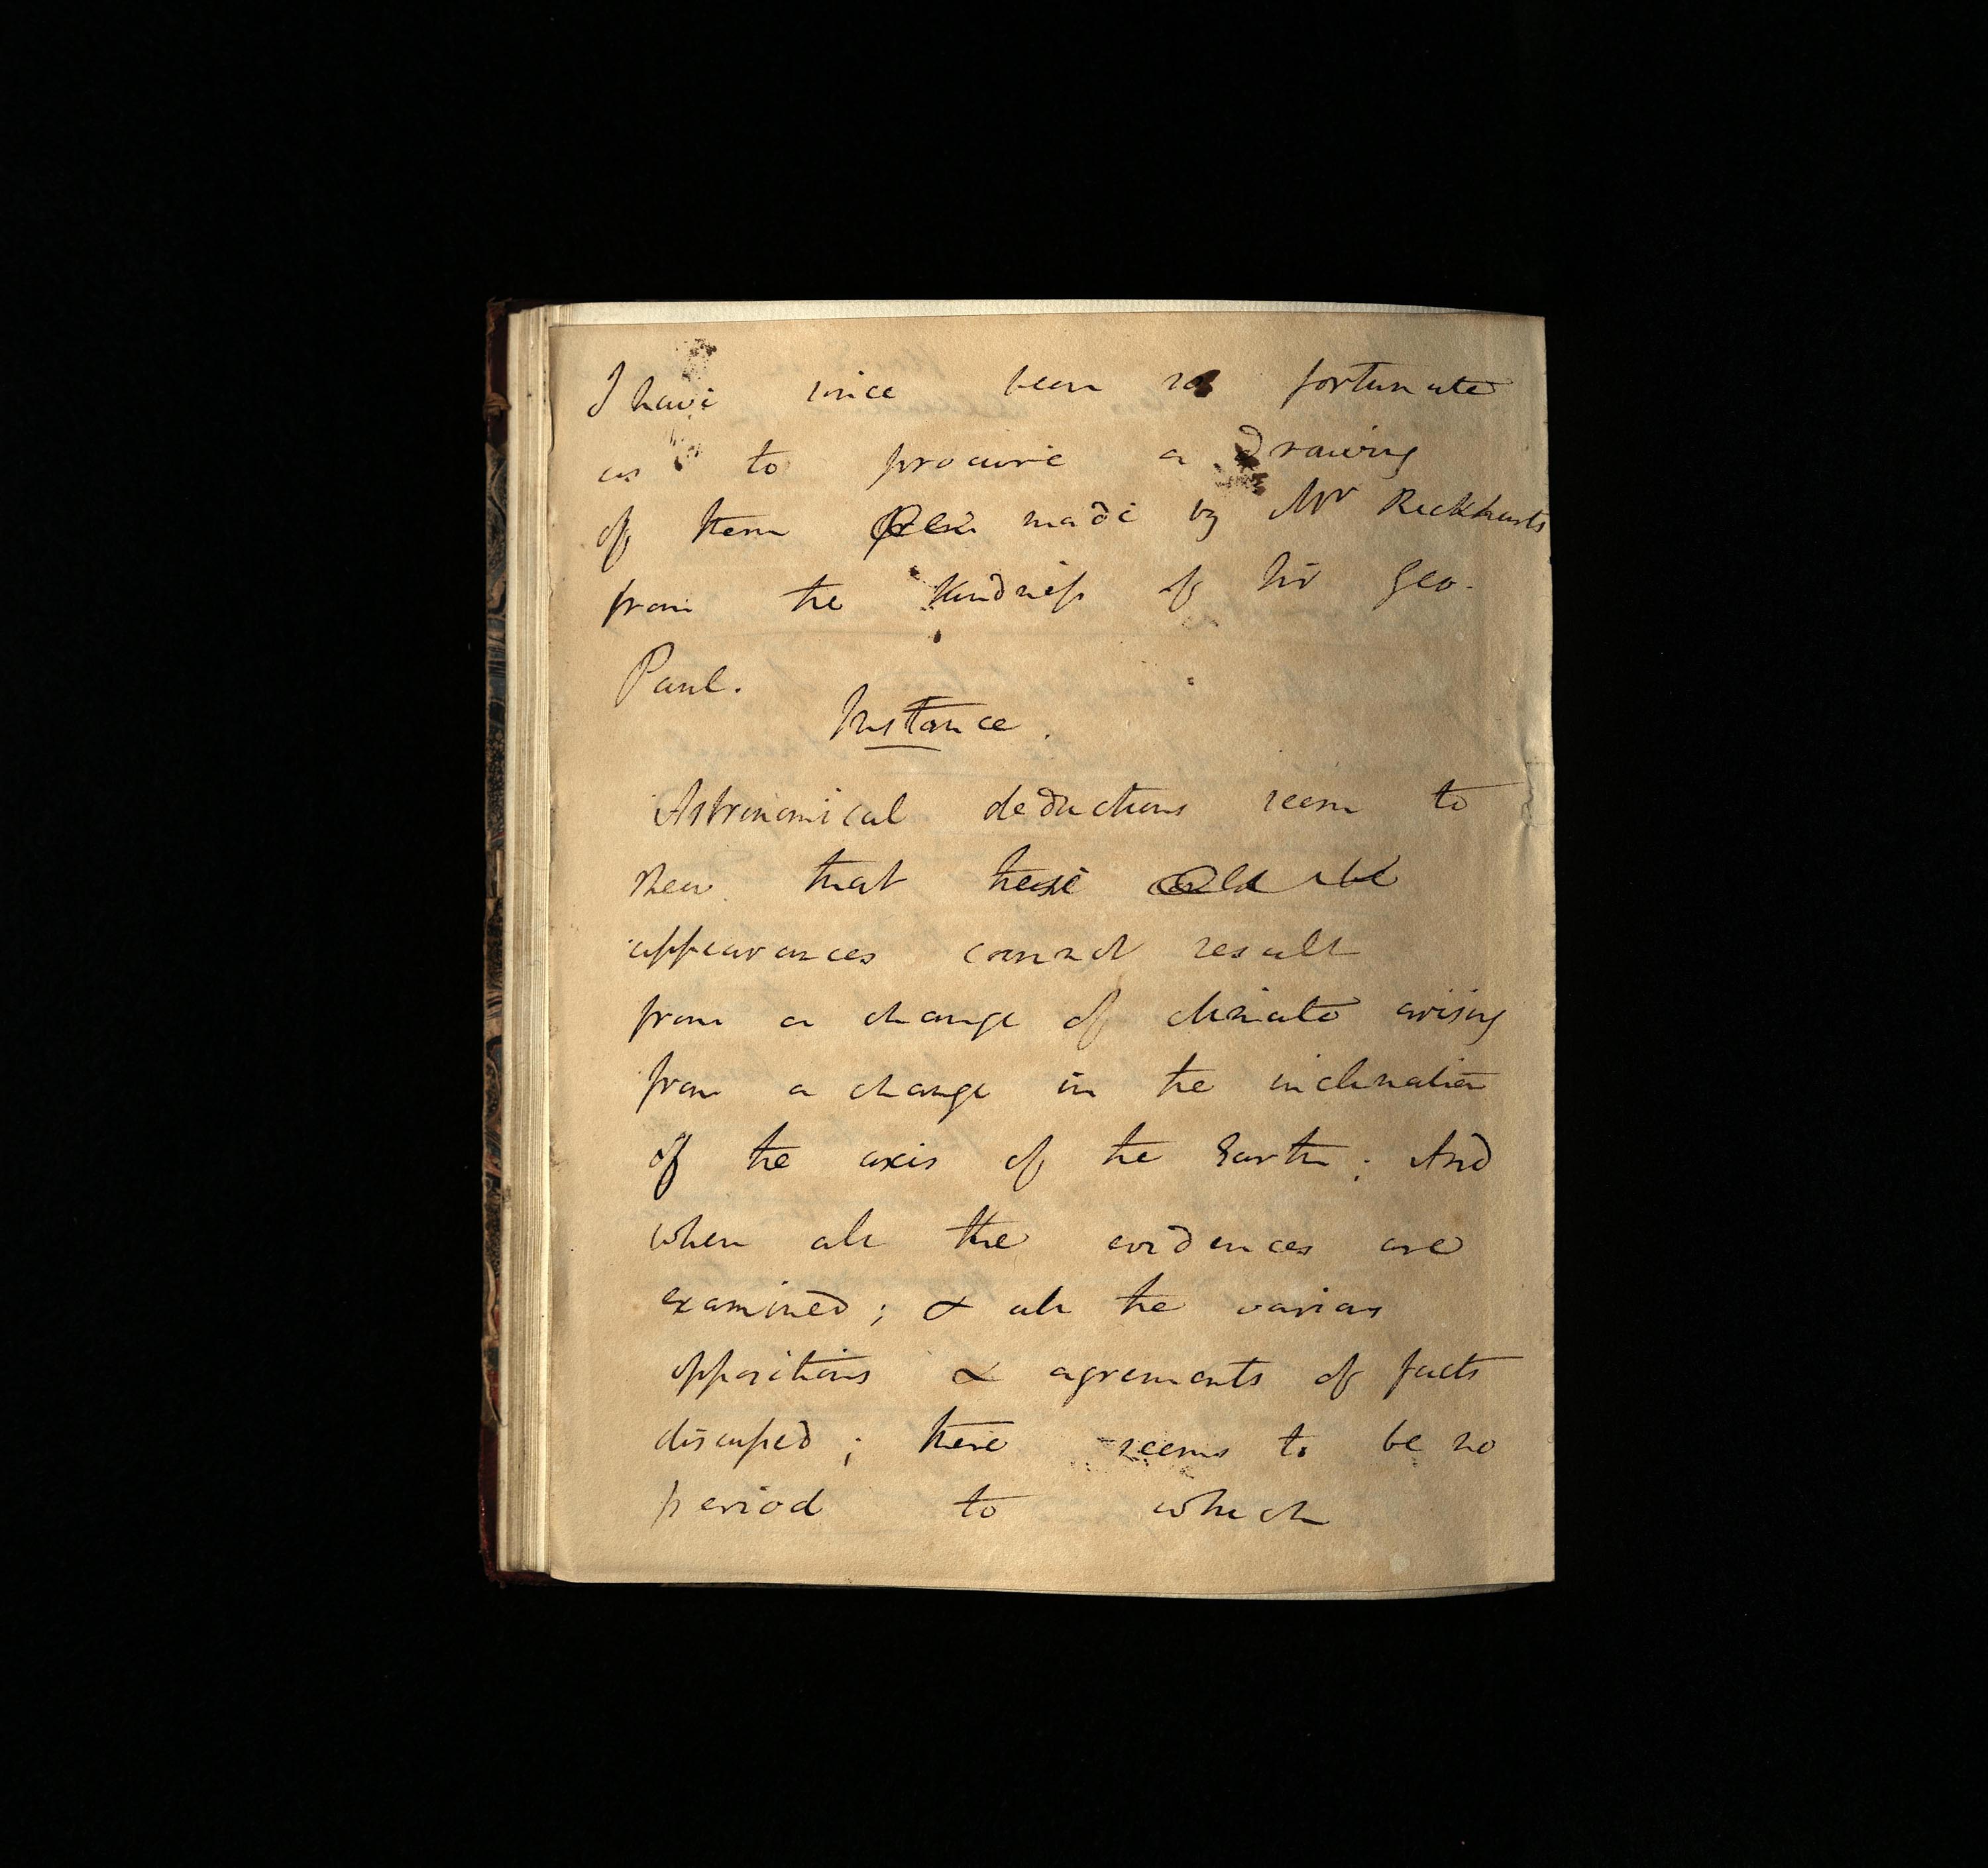 I have since been so fortunate
as to procure a drawing
of them made by Mr
from the kindness of Sir Geo.
Paul.
Instance.
Astronomical deductions seem to
shew that these
appearances cannot result
from a change of climate arising
from a change in the inclination
of the axis of the Earth; And
when all the evidences are
examined; & all the various
oppositions & agrements of facts
discussed; there seems to be no
period to which